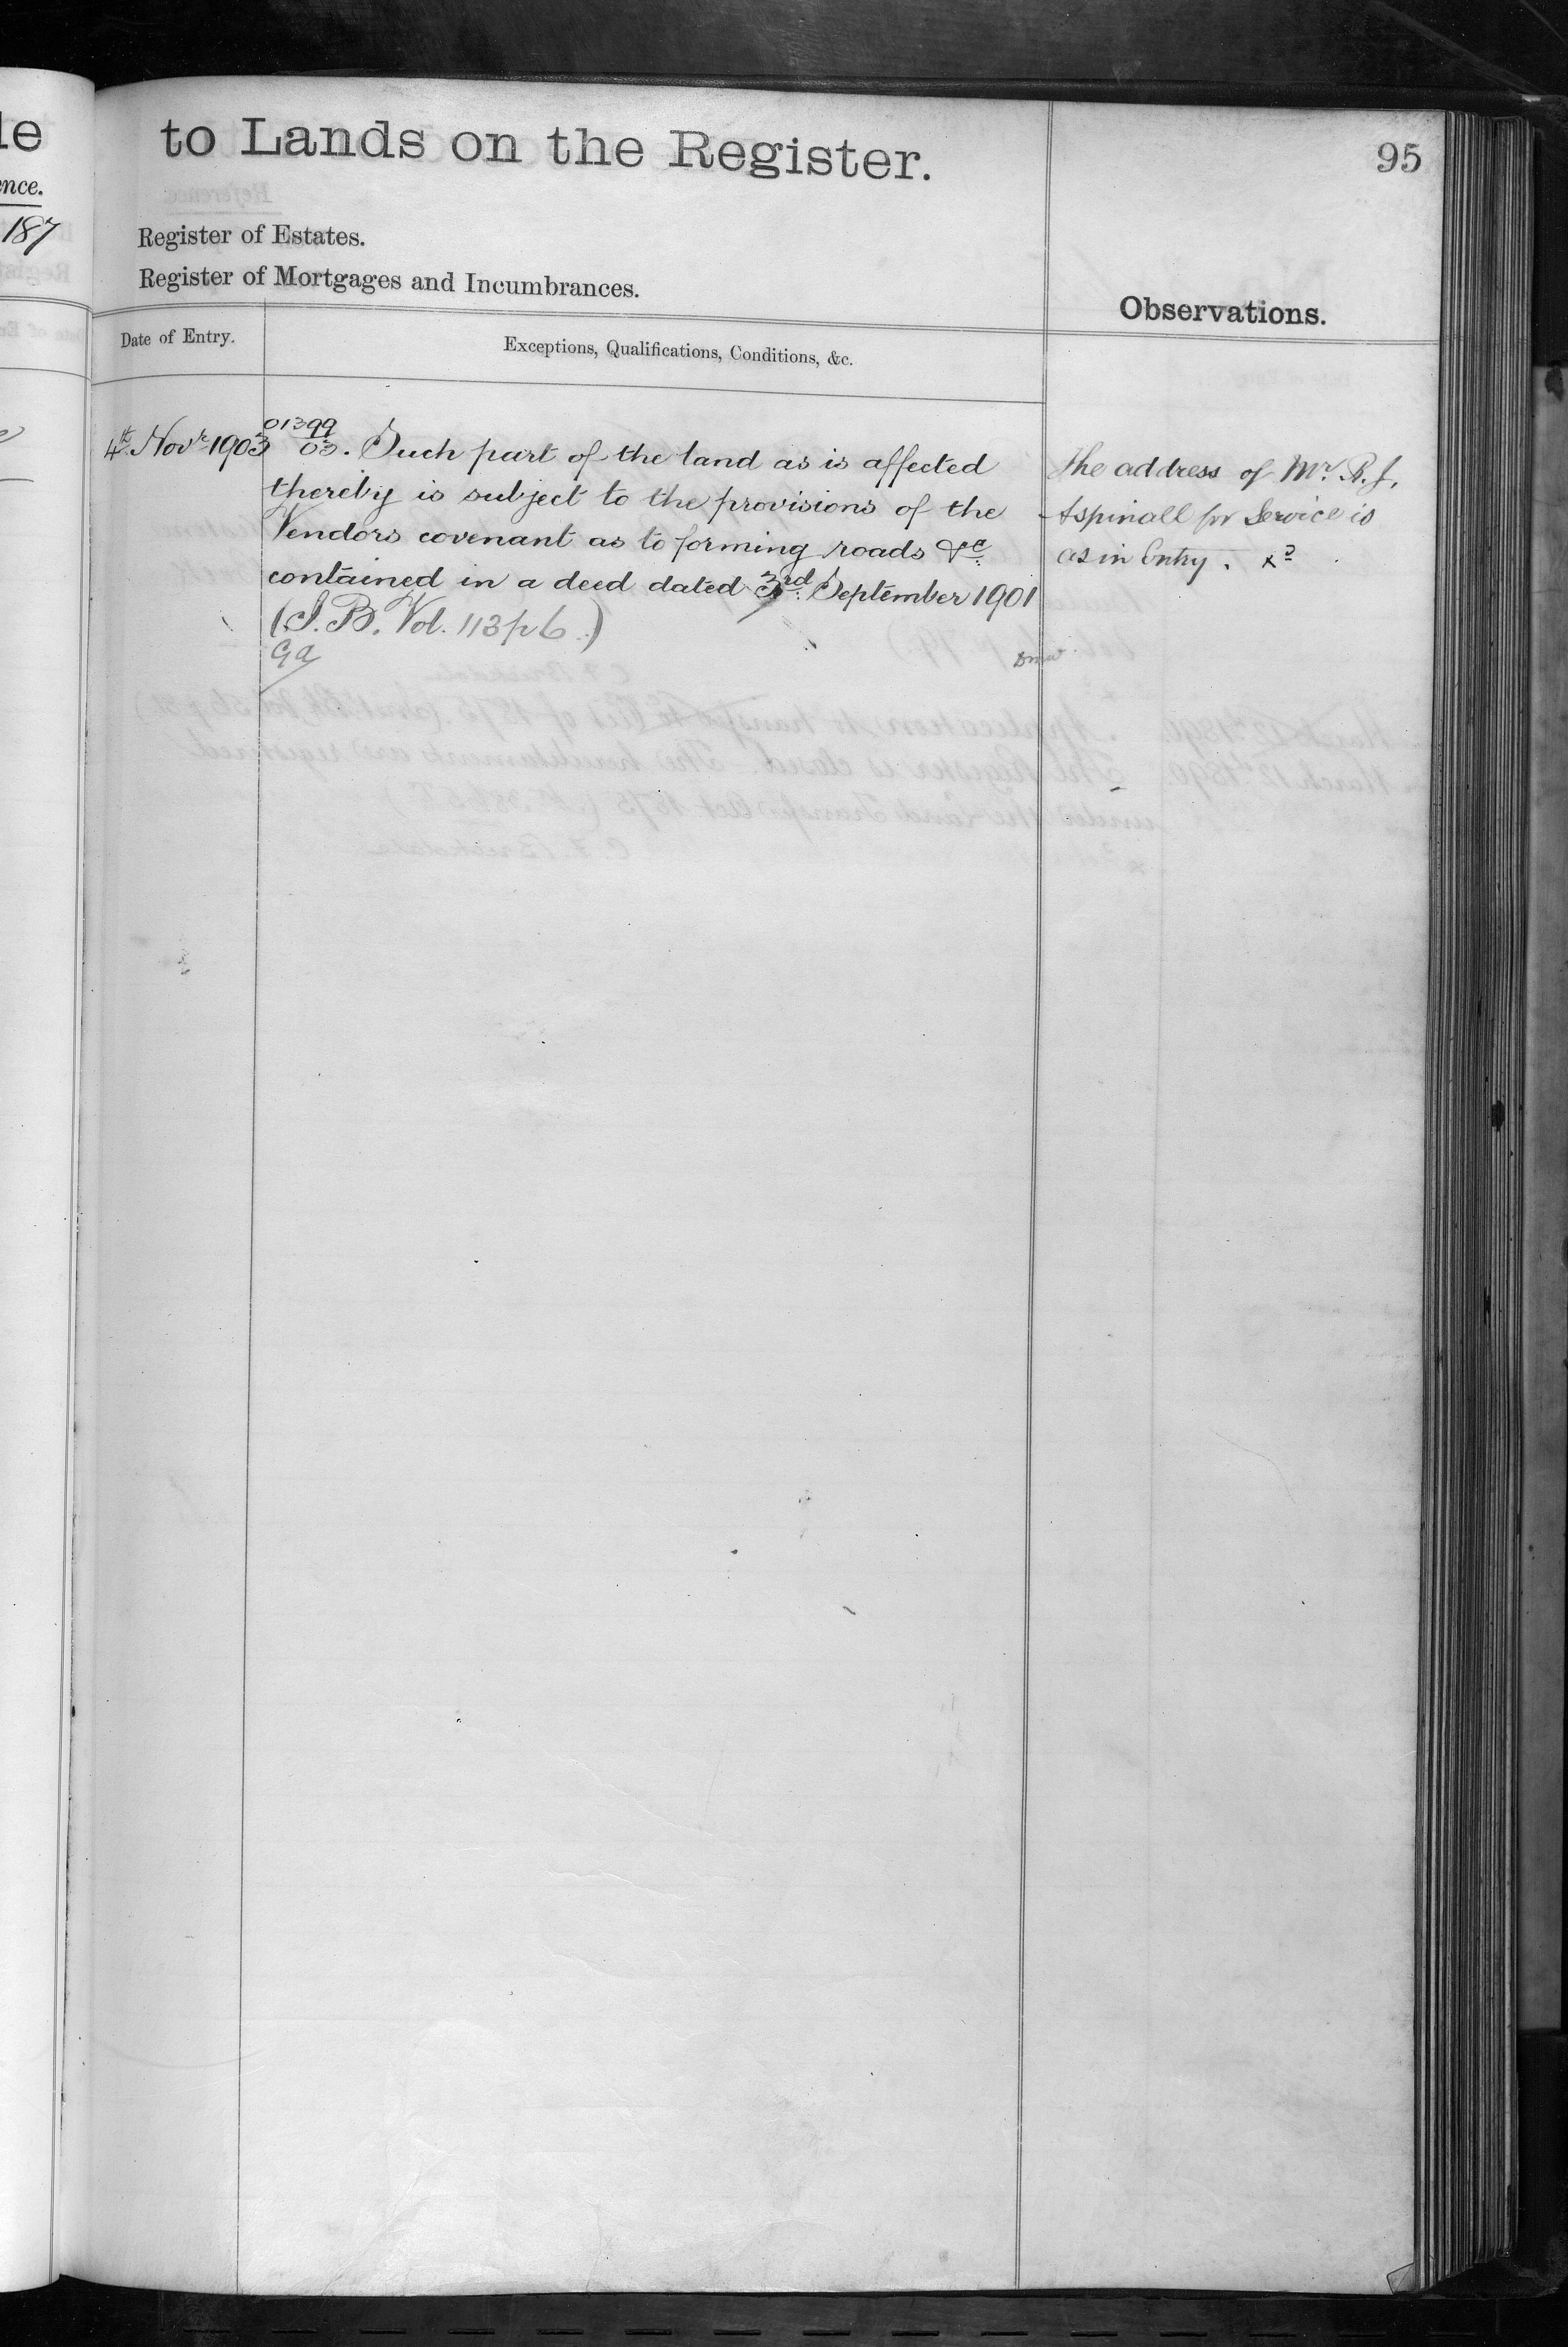 to Lands on the Register.
95
Register of Estates.
Register of Mortgages and Incumbrances.
Observations.
Date of Entry.
Exceptions, Qualifications, Conditions, &c.
4th Novr 1903
01399
03. Such part of the land as is affected
thereby is subject to the provisions of the
Vendors covenant as to forming roads &c
contained in a deed dated 3rd September 1901
(S. B. Vol. 113 p 6.)
The address of Mr. R. J.
Aspinall for Service is
as in Entry.
187